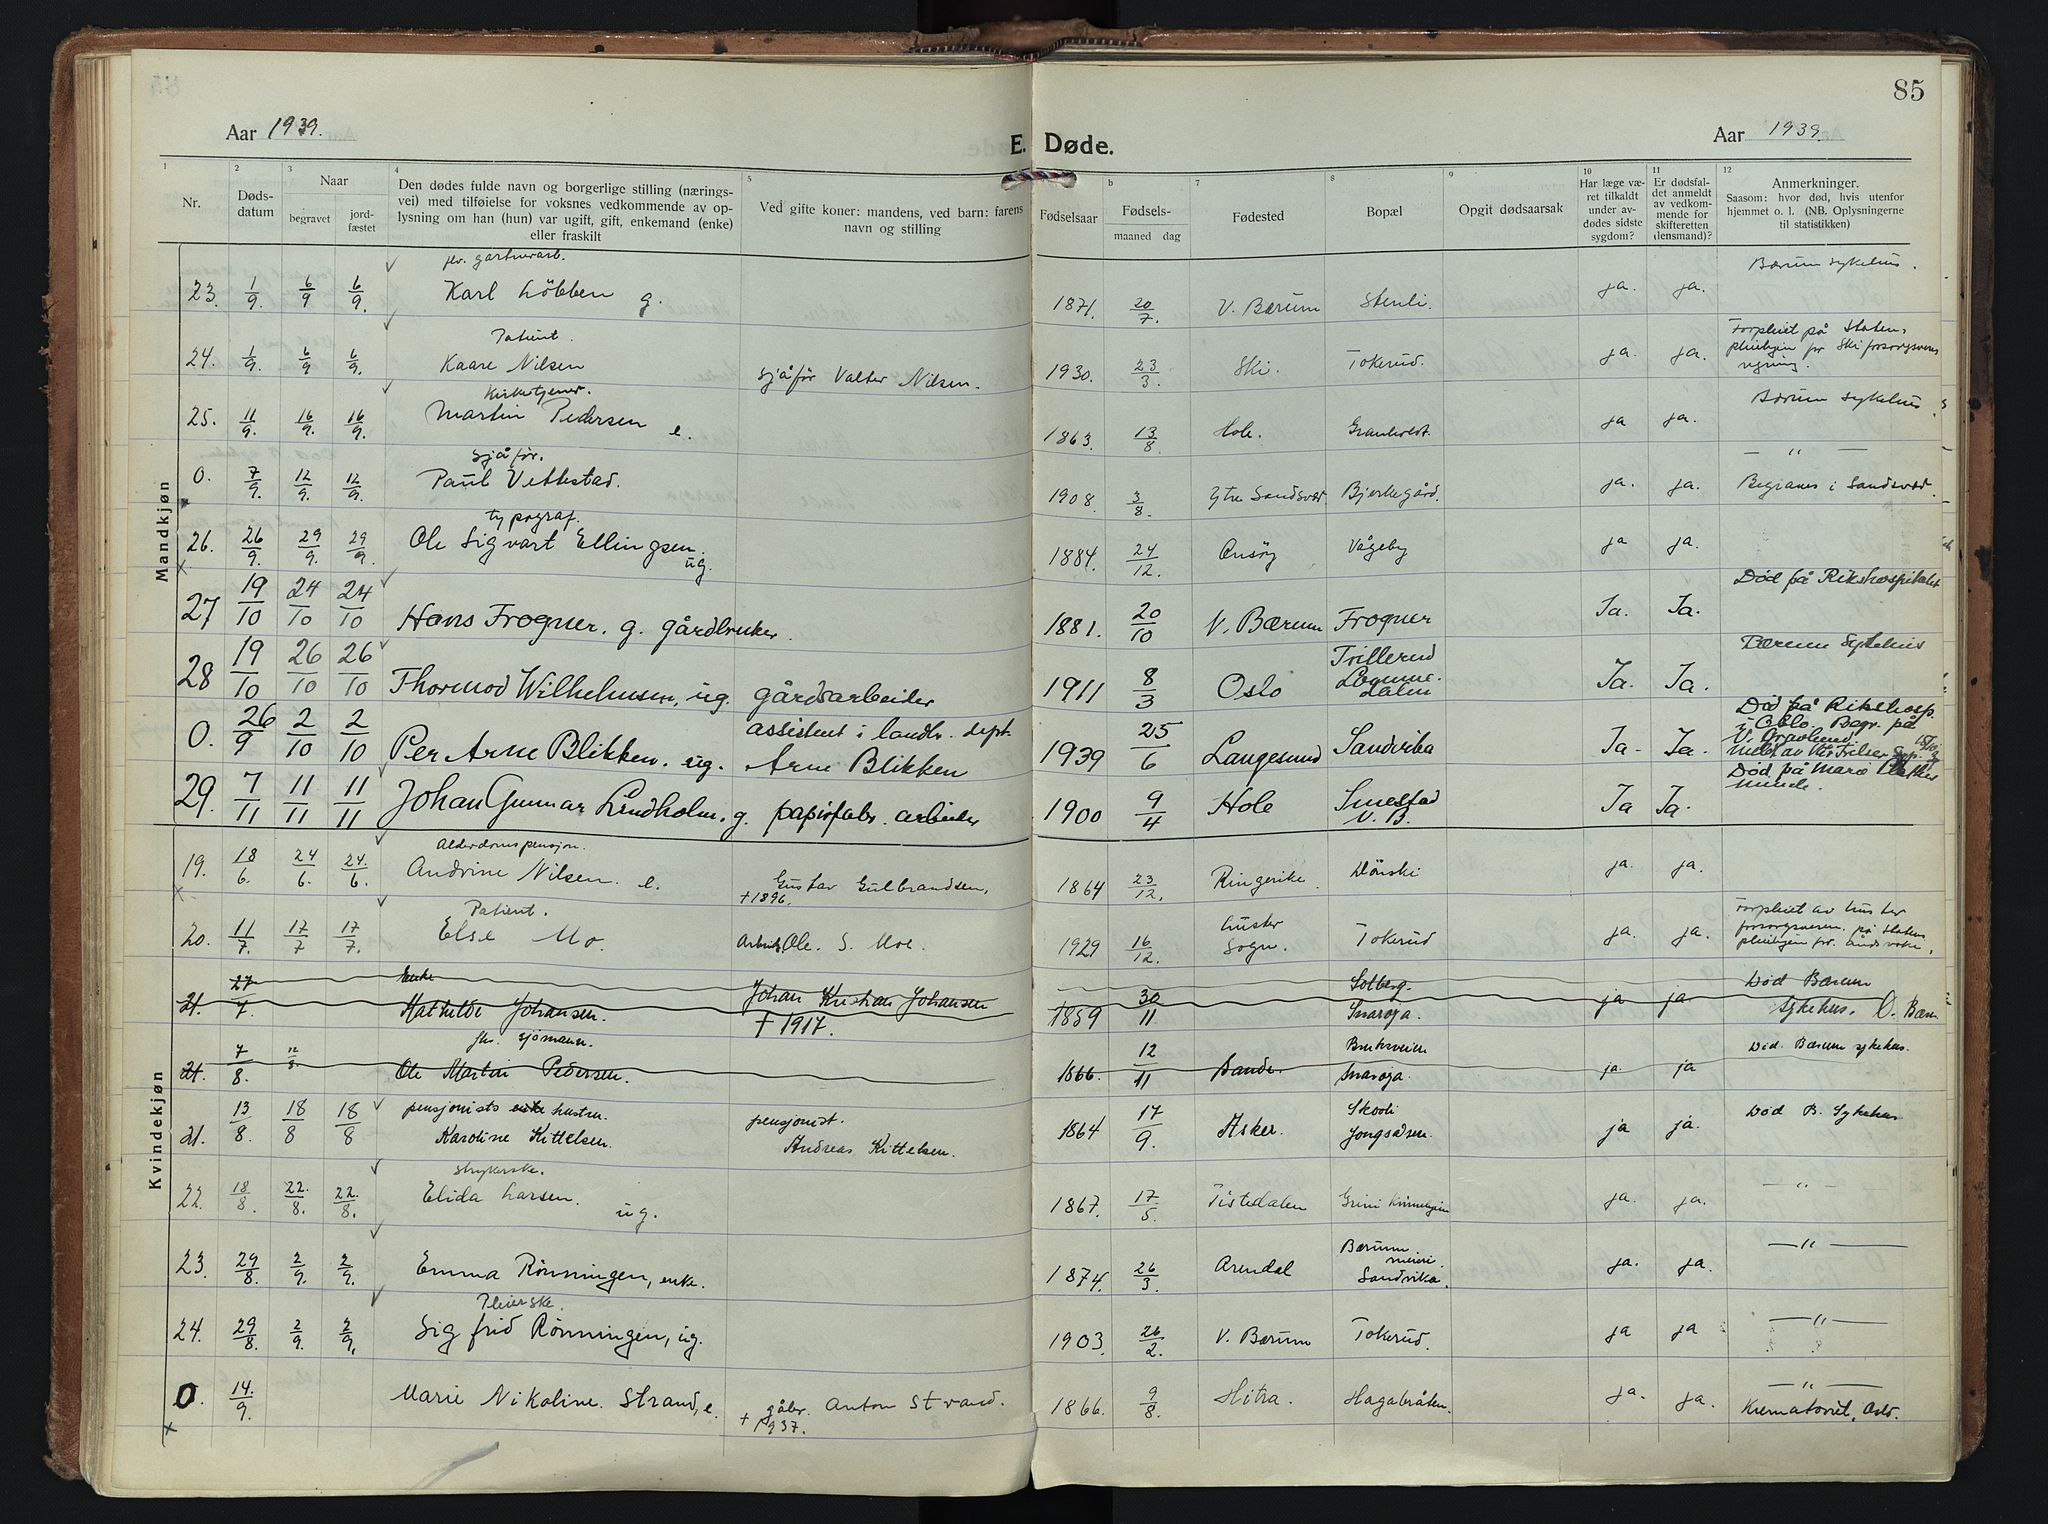 85
Aar 1939.
E. Døde.
Aar 1939.
1 2 3 4 5 b 7 8 9 10 11 12
Nr.
Døds-
datum
Naar
begravet
jord-
fæstet
Den dødes fulde navn og borgerlige stilling (nærings-
vei) med tilføielse for voksnes vedkommende av op-
lysning om han (hun) var ugift, gift, enkemand (enke)
eller fraskilt
Ved gifte koner: mandens, ved barn: farens
navn og stilling
Fødselsaar
Fødsels-
maaned dag
Fødested
Bopæl
Opgit dødsaarsak
Har læge væ-
ret tilkaldt
under av-
dødes sidste
sygdom?
Er dødsfal-
det anmeldt
av vedkom-
mende for
skifteretten
(lensmand)?
Anmerkninger.
Saasom: hvor død, hvis utenfor
hjemmet o. l. (NB. Oplysningerne
til statistikken)
Mandkjøn
fhv. gartnerarb. Bærum sykehus.
23. 1/9. 6/9 6/9. Karl Löbben g. 1871. 20/7. V. Bærum Stenli. ja. ja.
Patient. Forpleiet på Statens
24. 1/9. 6/9. 6/9. Kaare Nilsen sjåför Valter Nilsen. 1930. 23/3. Ski. Tokerud. ja. ja. pleiehjem for Ski forsorgsvesens
regning.
Kirketjener. Bærum sykehus.
25. 11/9. 16/9. 16/9. Martin Pedersen e. 1863. 13/8 Hole. Granholdt. ja ja.
sjåför. — " —
0. 7/9. 12/9. 12/9. Paul Vettestad. 1908. 3/8. Ytre Sandsvær Bjerkegård. ja. ja. Begraves i Sandsvær.
typograf.
26. 26/9. 29/9. 29/9. Ole Sigvart Ellingsen. ug. 1884. 24/12. Onsöy Vågeby ja ja.
27 19/10 24/10 24/10 Hans Frogner. g. gårdbruker. 1881. 20/10 V. Bærum Frogner Ja. Ja. Död på Rikshospitalet
28 19/10 26/10 26/10 Thormod Wilhelmsen, ug. gårdsarbeider 1911 8/3 Oslo Trillerud
Lommedalen Ja. Ja. Bærum Sykehus
0. 26/9 2/10 2/10 Per Arne Blikken. ug. assistent i landbr. dept.
Arne Blikken 1939 25/6 Langesund Sandvika Ja. Ja. Död på Rikshosp.
i Oslo. Begr. på
V. Gravlund.
29. 7/11 11/11 11/11 Johan Gunnar Lindholm. g. papirfabr. arbeider 1900 9/4 Hole Smestad
V. B. Ja Ja. Död på Marië Plathes
minde.
Kvindekjøn
Alderdomspensjon.
19. 18/6. 24/6. 24./6. Andrine Nilsen. e. Gustav Gulbrandsen,
+1896. 1864 23/12. Ringerike. Dönski ja. ja.
Patient. Forpleiet av Luster
20. 11/7. 17/7. 17/7. Else Mo. Arbeid. Ole. S. Moe. 1929 16/12. Luster
Sogn. Tokerud ja. ja. forsorgsvesen. på Statens
pleiehjem for åndsvake.
21. 27/7. Enke
Mathilde Johansen. Johan Kristian Johansen
† 1917. 1859 30/11 Solberg.
Snarøya. ja ja Død Bærum
Sykehus. Ö. Bærum
fhv. sjömann.
21. 7/8. Ole Martin Pedersen. 1866. 12/11 Sande. Bruksveien
Snarøya. ja. ja Död. Bærum sykehus.
21. 13/8. 18/8 18/8 pensjonists enke hustru.
Karoline Kittelsen. pensjonist.
Andreas Kittelsen. 1864 17/9. Asker. Skooli
Jongsåsen. ja ja. Død B. Sykehus
Strykerske.
22. 18/8. 22./8. 22./8. Elida Larsen. ug. 1867. 17/5. Tistedalen Grini Kvinnehjem ja. ja. — " —
23. 29/8. 2/9. 2/9. Emma Rönningen, enke. 1874. 26/3. Arendal Bærums
meieri.
Sandvika. ja. ja. — " —
Pleierske.
24. 29/8. 2/9. 2/9. Sigfrid Rönningen, ug. 1903. 26/2. V. Bærum Tokerud. ja ja — " —
0. 14./9. Marie Nikoline Strand, e. gåbr. Anton Strand.
+ 1937. 1866. 9/8. Hitra. Hagabråten. ja. ja. — " —
Krematoriet, Oslo.